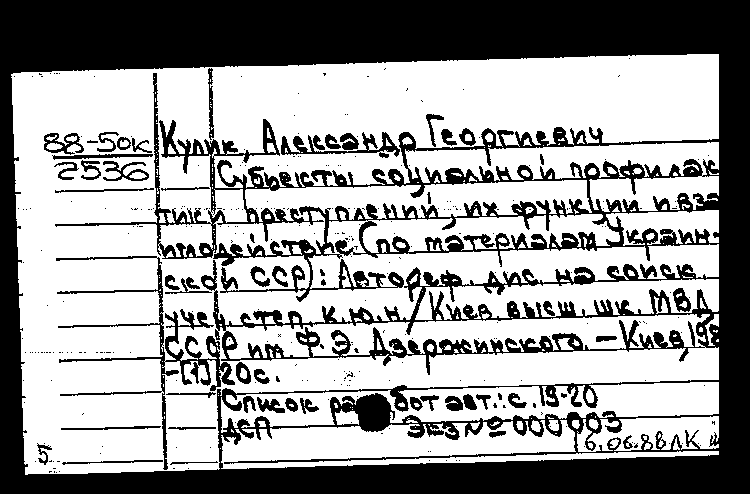 88-5ок
2536
Кулик, Александр Георгиевич
Субъекты социальной профилак
тики преступлений, их функции и вза
имодействие (по материалам Украин-
ской ССР): Автореф. дис. на соиск.
учен. степ. к.ю.н./Киев. высш. шк. МВД
СССР им. Ф.Э. Дзержинского. – Киев, 198
-[1], 20с.
Список работ авт.: с. 19-20
ДСП Экз № 000003
16.06.88 ЛК
5